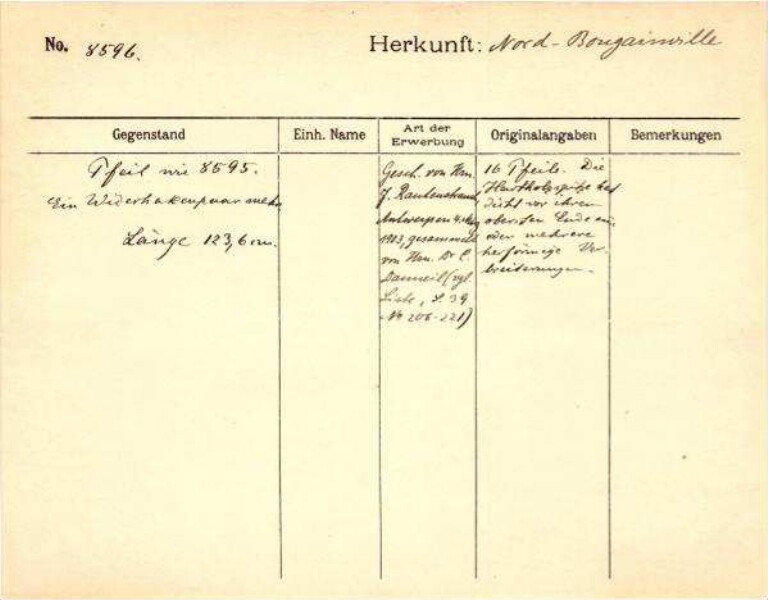 No. 8596.
Herkunft: Nord-Bougainville
Gegenstand
Einh. Name
Art der
Erwerbung
Originalangaben
Bemerkungen
Pfeil wie 8595.
Ein Widerhakenpaar mehr
Länge 123,6 cm.
Gesch. von Hrn.
J. Rautenstrauch,
Antwerpen
1903, gesammelt
von Hrn. Dr C.
Danneil (vgl.
Liste, S. 39
No 206-221)
16 Pfeile. Die
Hartholzspitze hat
dicht vor ihrem
obersten Ende ein
oder mehrere
förmige Ver-
breiterungen.